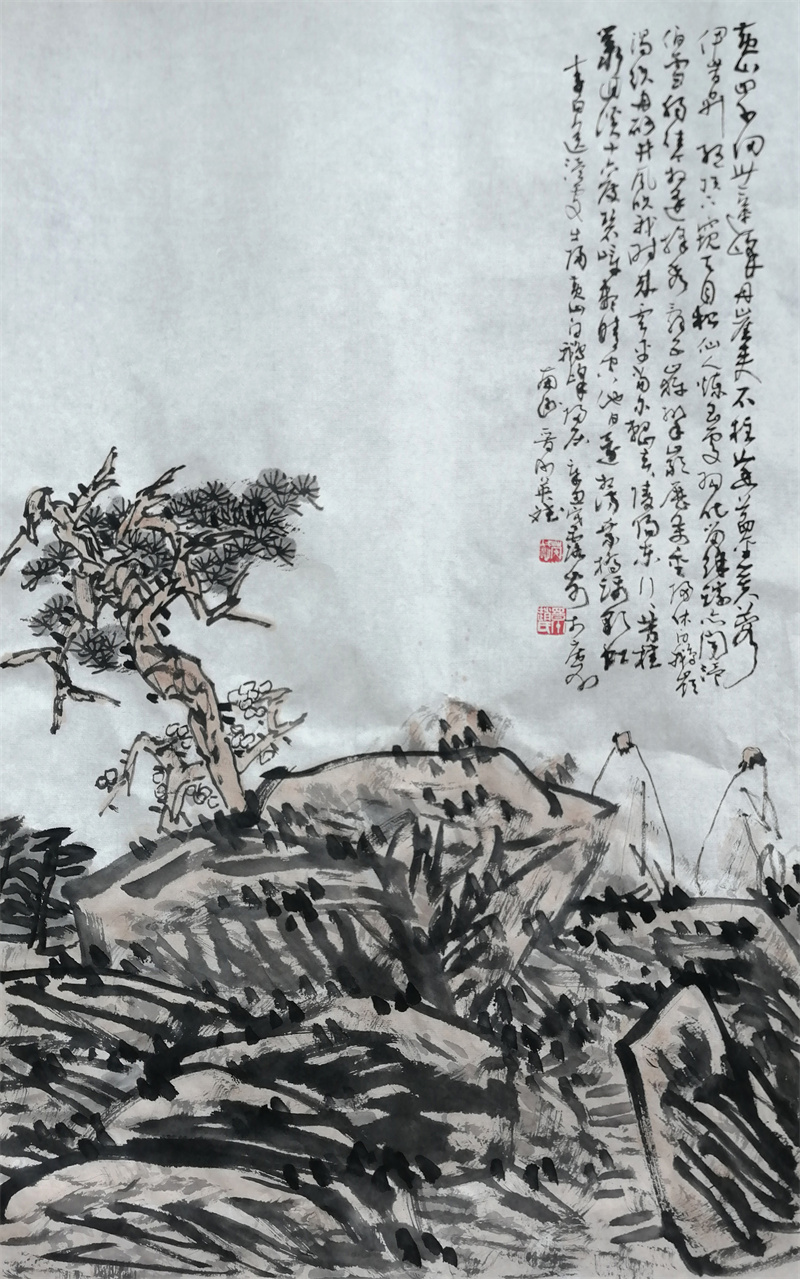 黄山四千仞卅二莲峰丹崖夹石柱菡萏金芙蓉
伊昔升绝顶下窥天目松仙人炼玉处羽化留余踪亦闻温
伯雪独往今相逢採秀辞五岳攀岩历万重归休白鹅岭
渴饮丹砂井凤吹我时来云车尔当整去去陵阳东行行芳桂
丛回溪十六度碧嶂尽晴空他日还相访乘桥蹑彩虹
李白送温处士归黄山白鹅峰旧居